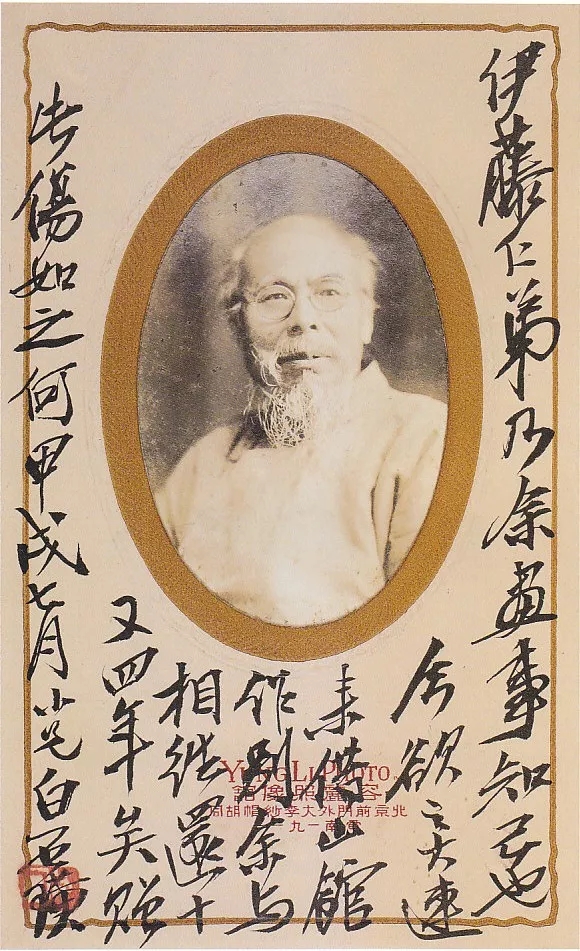 伊藤仁弟乃余畫事知己也
今欲之大連
來借山館
作別余与
相還十
又四年矣贈
此傷如之何甲戌七月小兄白石璜
YUNG LI PHOTO
容麗照像館
北京前門外大李紗帽胡同
電南一九